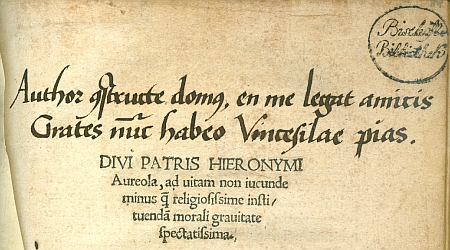 Bibliothek
Author ꝯstructe domꝰ, en me legat amicis
Grates nūc habeo Vincesilae pias.
DIVI PATRIS HIERONYMI
Aureola, ad uitam non iucunde
minus q̃ religioſiſſime inſti/
tuendã morali grauitate
ſpectatiſſima.